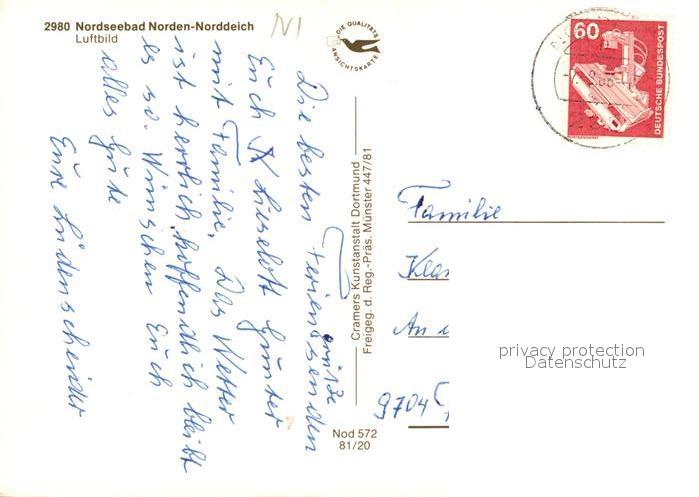 2980 Nordseebad Norden-Norddeich
Luftbild
NI
DIE QUALITÄTS
ANSICHTSKARTE
60
DEUTSCHE BUNDESPOST
Die besten Feriengrüße senden
Euch Lieselott Günter
mit Familie. Das Wetter
ist herrlich hoffendlich bleibt
es so. Wünschen Euch
alles Gute
Eure Lüdenscheider
Cramers Kunstanstalt Dortmund
Freigeg. d. Reg.-Präs. Münster 447/81
Nod 572
81/20
Familie
Kla
An
9704
privacy protection
Datenschutz